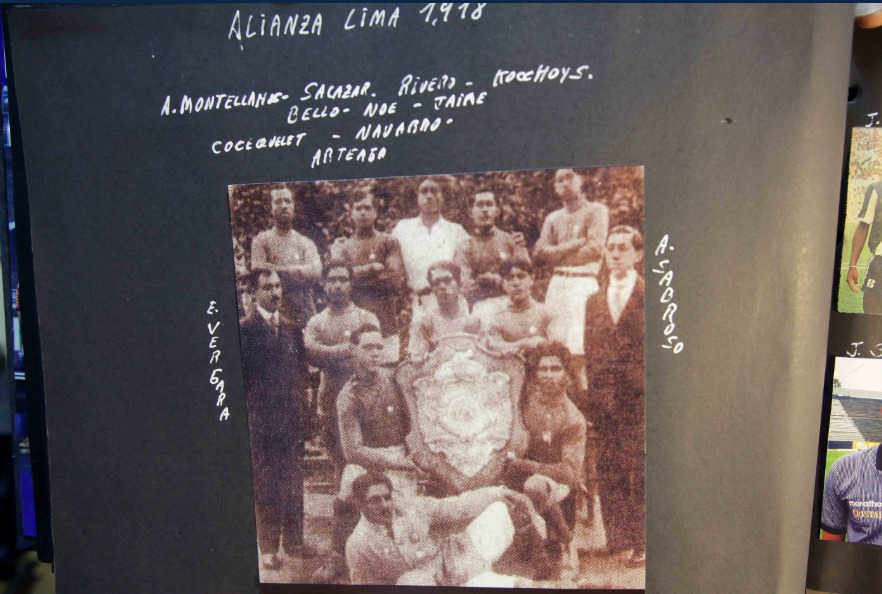 ALIANZA LIMA 1,918
A. MONTELLANOS- SALAZAR. RIVERO - KOCCHOYS.
BELLO - NOE - JAIME
COCEQUELET - NAVARRO-
ARTEAGA
E. VERGARA
A. SABROSO
J.
J. S
maratho
CRISTAL